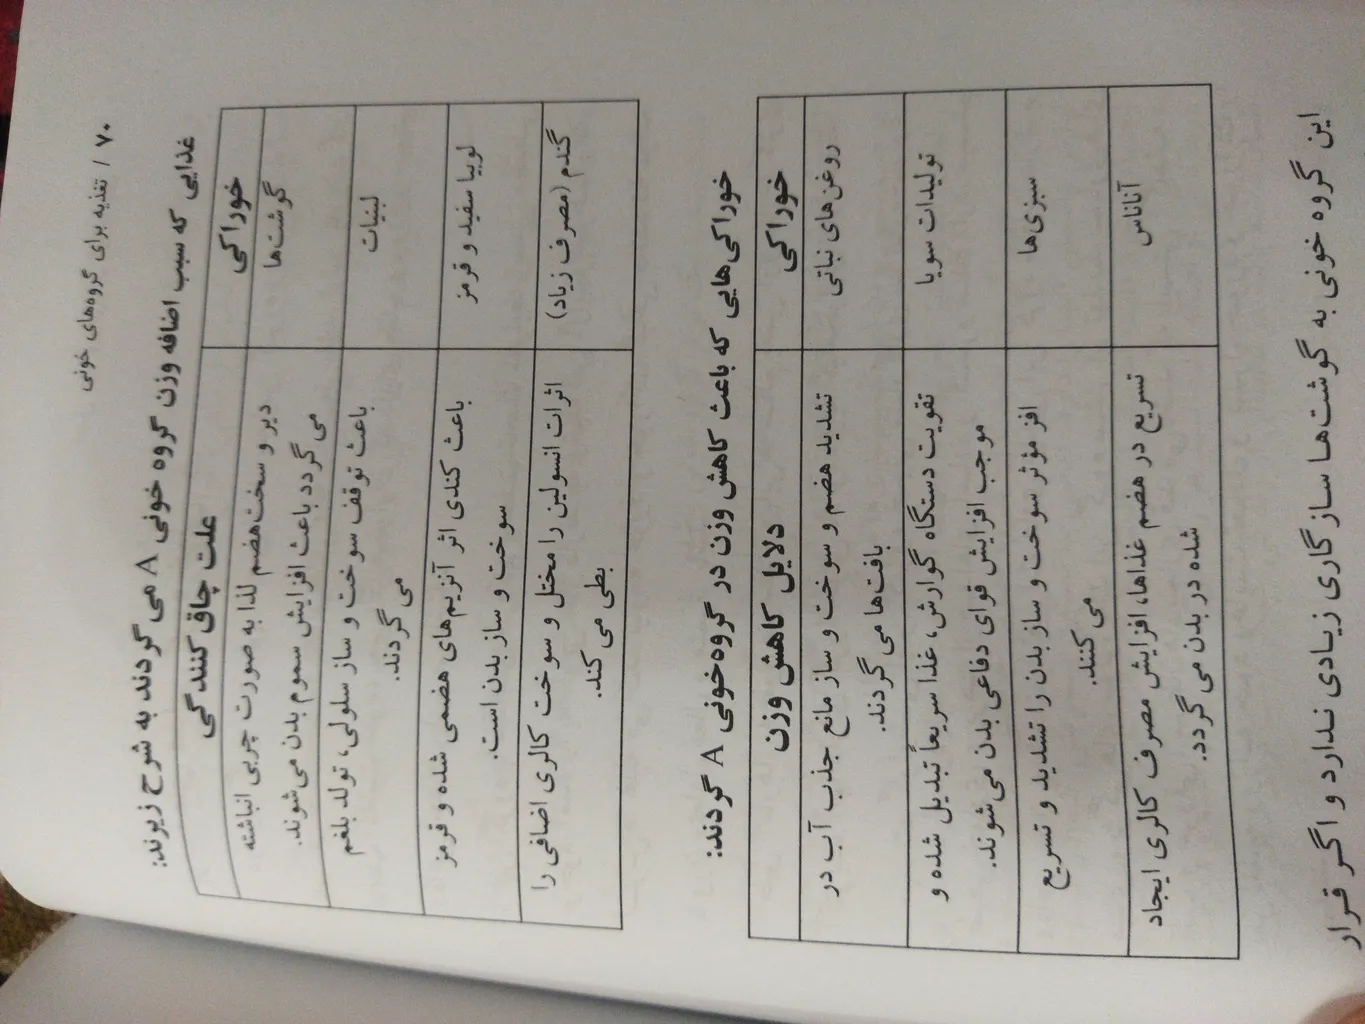 ۷۰ / تغذیه برای گروه‌های خونی
غذایی که سبب اضافه وزن گروه خونی A می‌گردند به شرح زیرند:
خوراکی
علت چاق‌کنندگی
گوشت‌ها
دیر و سخت‌هضم لذا به صورت چربی انباشته
می‌گردد باعث افزایش سموم بدن می‌شوند.
لبنیات
باعث توقف سوخت و ساز سلولی، تولد بلغم
می‌گردند.
لوبیا سفید و قرمز
باعث کندی اثر آنزیم‌های هضمی شده و قرمز
سوخت و ساز بدن است.
گندم (مصرف زیاد)
اثرات انسولین را مختل و سوخت کالری اضافی را
بطی می‌کند.
خوراکی‌هایی که باعث کاهش وزن در گروه‌خونی A گردند:
خوراکی
دلایل کاهش وزن
روغن‌های نباتی
تشدید هضم و سوخت و ساز مانع جذب آب در
بافت‌ها می‌گردند.
تولیدات سویا
تقویت دستگاه گوارش، غذا سریعاً تبدیل شده و
موجب افزایش قوای دفاعی بدن می‌شوند.
سبزی‌ها
افز مؤثر سوخت و ساز بدن را تشدید و تسریع
می‌کنند.
آناناس
تسریع در هضم غذاها، افزایش مصرف کالری ایجاد
شده در بدن می‌گردد.
این گروه خونی به گوشت‌ها سازگاری زیادی ندارد و اگر قرار